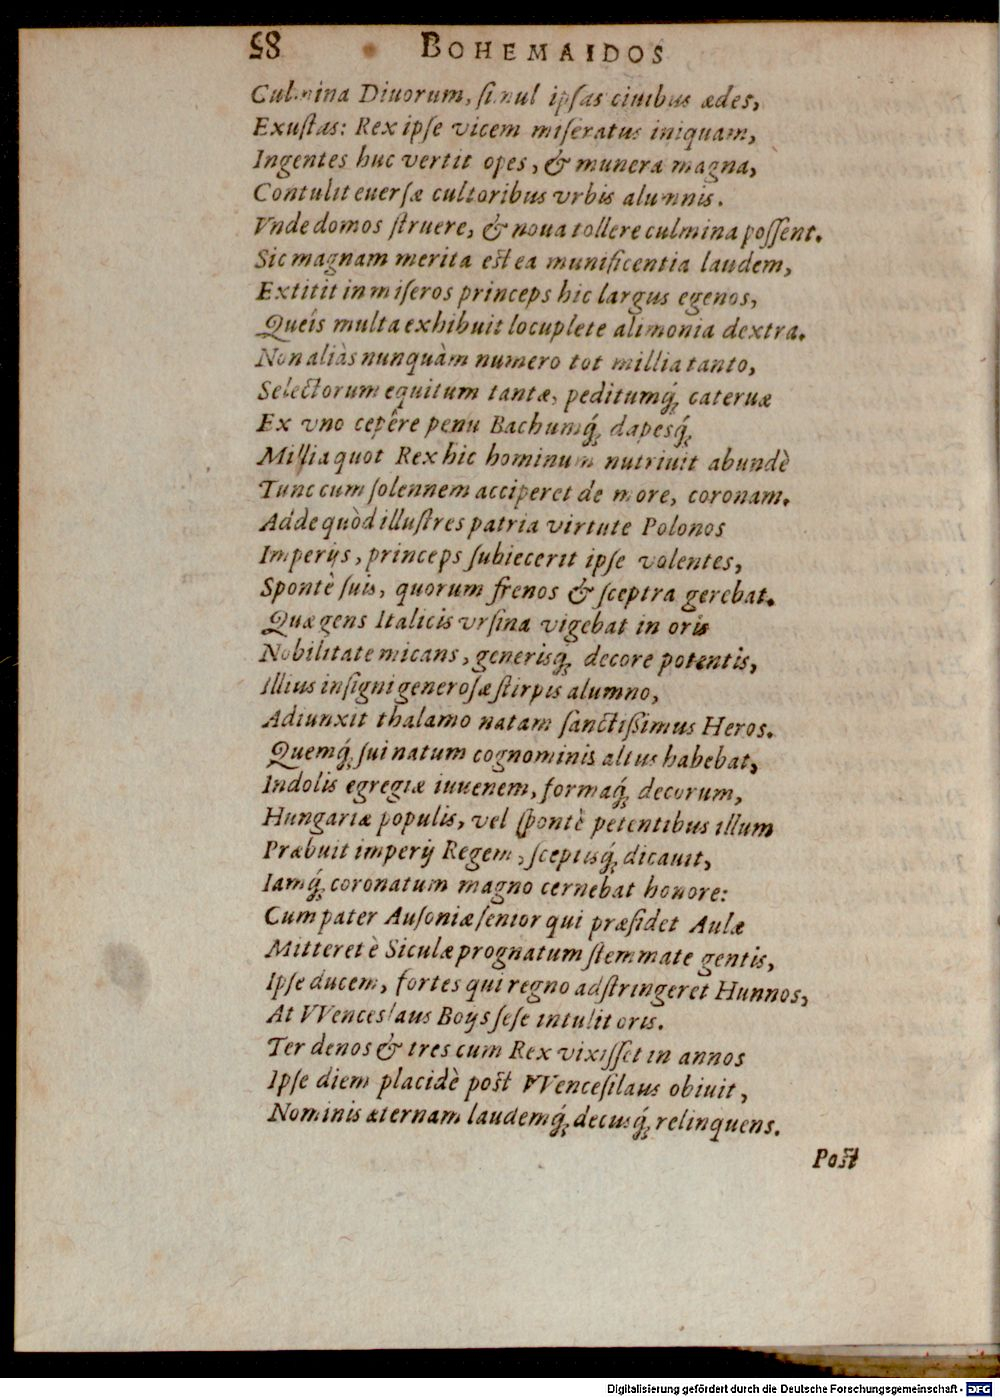 58 BOHEMAIDOS
Culmina Diuorum, ſimul ipſas ciuibus ædes,
Exuſtas: Rex ipſe vicem miſeratus iniquam,
Ingentes huc vertit opes, & munera magna,
Contulit euerſæ cultoribus vrbis alumnis.
Vnde domos ſtruere, & noua tollere culmina poſſent.
Sic magnam merita eſt ea munificentia laudem,
Extitit in miſeros princeps hic largus egenos,
Queîs multa exhibuit locuplete alimonia dextra.
Non aliàs nunquàm numero tot millia tanto,
Selectorum equitum tantæ, peditumq́; cateruæ
Ex vno cepêre penu Bachumq́; dapesq́;
Millia quot Rex hic hominum nutriuit abundè
Tunc cum ſolennem acciperet de more, coronam.
Adde quòd illuſtres patria virtute Polonos
Imperijs, princeps ſubiecerit ipſe volentes,
Spontè ſuis, quorum frenos & ſceptra gerebat.
Quæ gens Italicis vrſina vigebat in oris
Nobilitate micans, generisq́; decore potentis,
Illius inſigni generoſæ ſtirpis alumno,
Adiunxit thalamo natam ſanctiſsimus Heros.
Quemq́; ſui natum cognominis altus habebat,
Indolis egregiæ iuuenem, formaq́; decorum,
Hungariæ populis, vel ſpontè petentibus illum
Præbuit imperij Regem, ſceptisq́; dicauit,
Iamq́; coronatum magno cernebat honore:
Cum pater Auſoniæ ſenior qui præſidet Aulæ
Mitteret è Siculæ prognatum ſtemmate gentis,
Ipſe ducem, fortes qui regno adſtringeret Hunnos,
At VVenceslaus Boijs ſeſe intulit oris.
Ter denos & tres cum Rex vixiſſet in annos
Ipſe diem placidè poſt VVenceſilaus obiuit,
Nominis æternam laudemq́; decusq́; relinquens.
Poſt
Digitalisierung gefördert durch die Deutsche Forschungsgemeinschaft - DFG